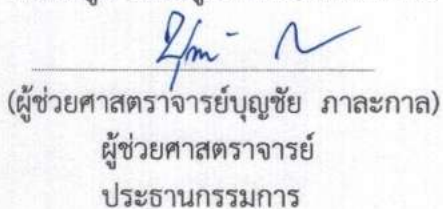 (ผู้ช่วยศาสตราจารย์บุญชัย ภาละกาล)
ผู้ช่วยศาสตราจารย์
ประธานกรรมการ